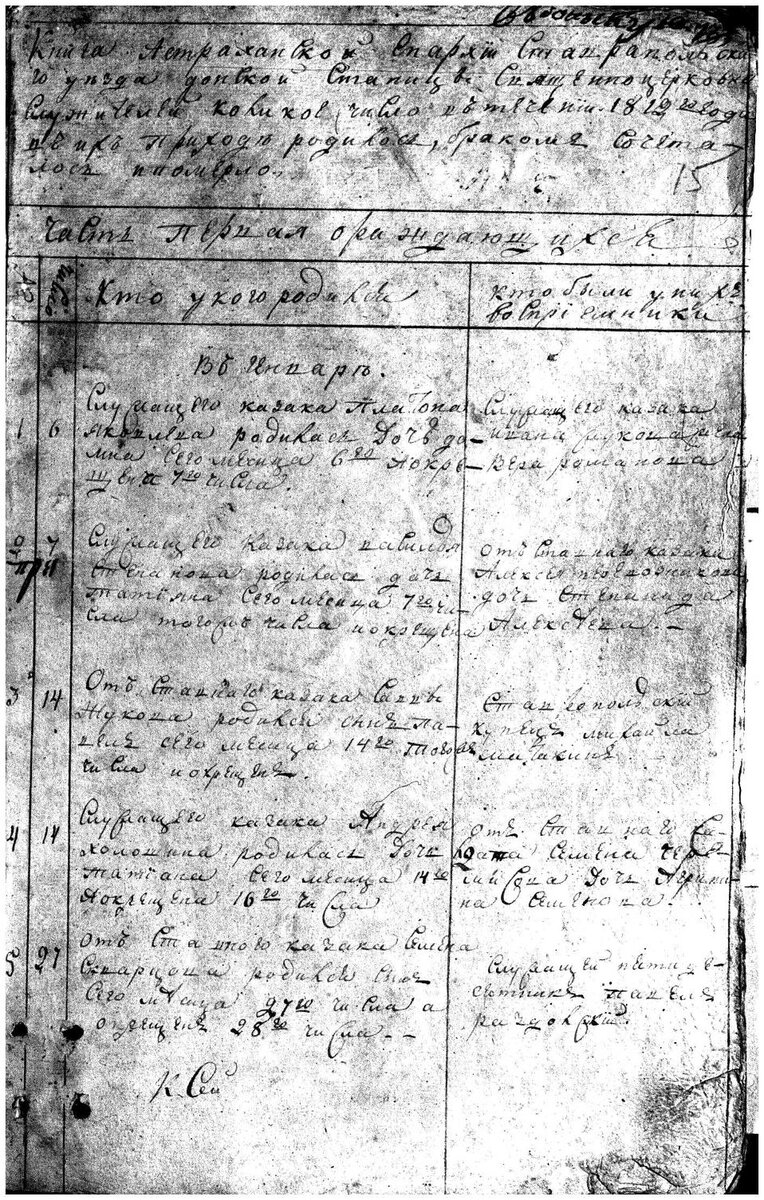 Книга Астраханской Епархiи Ставропольска-
го уезда донской Станицы Священноцерковно
Служителей коликое число втечении 1819го года
вчихъ приходъ родилось, бракомъ Сочета-
лось ипомерло.
15
Часть первая ораждающихся
№
число
Кто укогородился
кто были унихъ
воспрiемники
Въ Генваръ.
Служащего казака Платона
Яковлева родилась дочь до-
мна Сего месеца 6го Покре-
щена 7го числа.
Служащего казака
ивана
Вера романова
1
6
Служащего казака
Степанова родилась дочь
татьяна Сего месеца 7го чи-
сла тогоже числа икрещена
отъ Ставнаго казака
Алексея
дочь Степанида
Алексеева. –
7
11
Отъ Ставнаго казака Саввы
Жукова родился сынъ па-
велъ сего месеца 14го тогоже
числа икрещенъ.
Ставропольский
купецъ михайла
3
14
Служащего казака Андрея
холошина родилась дочь
татиана Сего месеца 14го
Покрещена 16го числа
отъ Ставнаго ка-
зака Семена
дочь
на Семенова.
4
14
отъ Ставного казака Семена
Скварцова родился сынъ
Сего месеца 27го числа а
окрещенъ 28го числа – –
Служащей пятиде-
сятникъ павелъ
раздорский.
5
27
К Сей